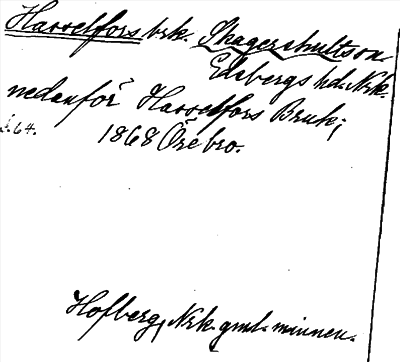 Hasselfors brk. Skagershults sn
Edsbergs hd. Nrk.
nedanför Hasselfors Bruk;
s. 64. 1868 Örebro.
Hofberg, Nrk. gml. minnen.